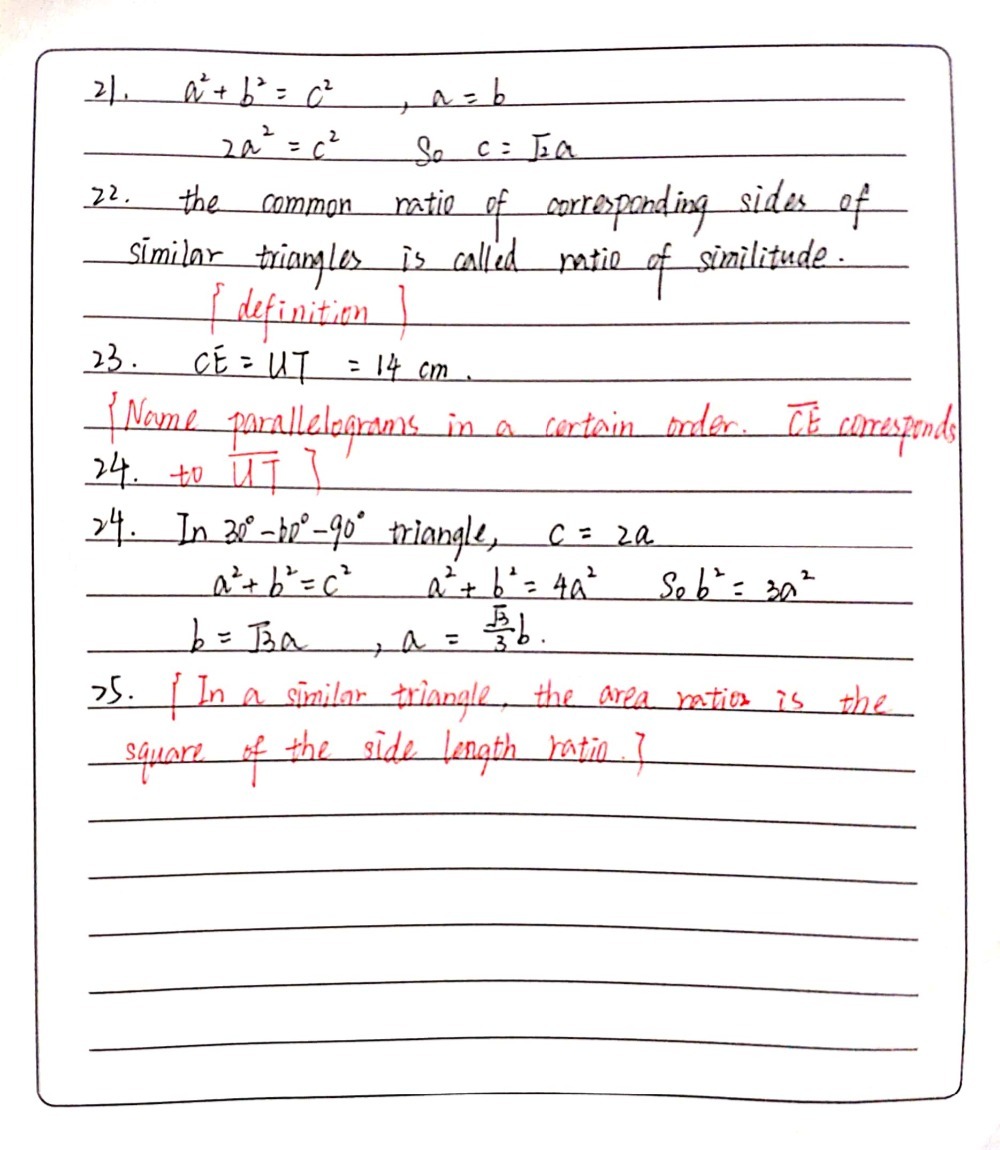 21. a² + b² = c² , a = b
2a² = c² So c = √2a
22. the common ratio of corresponding sides of
similar triangles is called ratio of similitude.
{ definition }
23. CE = UT = 14 cm .
{Name parallelograms in a certain order. C̅E̅ corresponds
24. to U̅T̅ }
24. In 30°-60°-90° triangle, c = 2a
a² + b² = c² a² + b² = 4a² So b² = 3a²
b = √3a , a = √3/3 b.
25. { In a similar triangle, the area ratio is the
square of the side length ratio.}